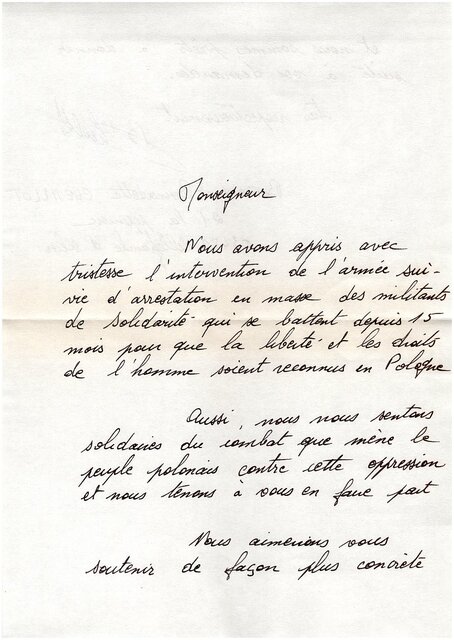 Monseigneur
Nous avons appris avec
tristesse l'intervention de l'armée sui-
vie d'arrestation en masse des militants
de Solidarité qui se battent depuis 15
mois pour que la liberté et les droits
de l'homme soient reconnus en Pologne
Aussi, nous nous sentons
solidaires du combat que mène le
peuple polonais contre cette oppression
et nous tenons à vous en faire part
Nous aimerions vous
soutenir de façon plus concrète